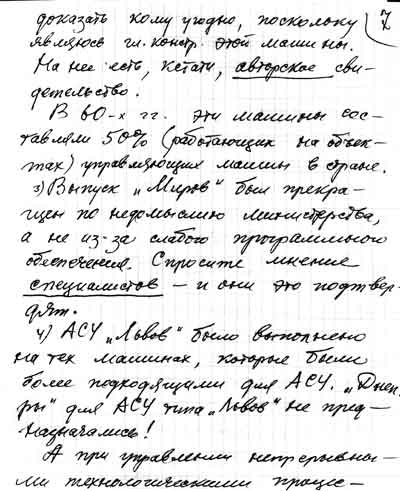 7
доказать кому угодно, поскольку
являюсь гл. констр. этой машины.
На нее есть, кстати, авторское сви-
детельство.
В 60-х гг. эти машины сос-
тавляли 50% (работающих на объек-
тах) управляющих машин в стране.
3) Выпуск „Миров" был прекра-
щен по недомыслию министерства,
а не из-за слабого программного
обеспечения. Спросите мнение
специалистов – и они это подтвер-
дят.
4) АСУ „Львов" было выполнено
на тех машинах, которые были
более подходящими для АСУ. „Днеп-
ры" для АСУ типа „Львов" не пред-
назначались!
А при управлении непрерывны-
ми технологическими процес-